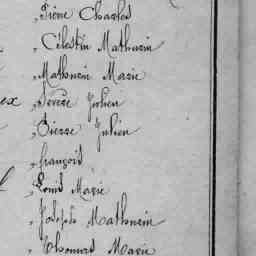 Irène Charles
Célestin Mathurin
Mathurin Marie
Sévère Julien
Pierre Julien
François
Louis Marie
Joseph Mathurin
Thomas Marie